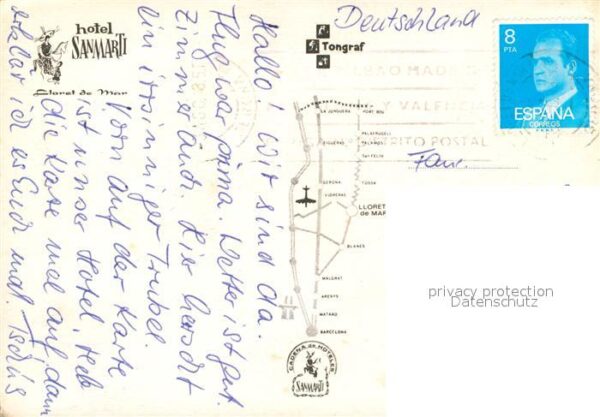 hotel
SANMARTI
Lloret de Mar
Tongraf
Deutschland
8
PTA
ESPAÑA
CORREOS
Y VALENCIA
DISTRITO POSTAL
Fam.
Hallo! Wir sind da.
Flug war prima. Wetter ist gut.
Zimmer auch. Hier herrscht
ein irrsinniger Trubel.
Vorn auf der Karte
ist unser Hotel. Heb
die Karte mal auf, dann
erklär ich es Euch mal. Tschüs
LA JUNQUERA
PORT BOU
FIGUERAS
PALAFRUGELL
PALAMOS
SN FELIU
GERONA
TOSSA
VIDRERAS
LLORET
DE MAR
BLANES
MALGRAT
ARENYS
MATARO
BARCELONA
CADENA de HOTELES
SANMARTI
privacy protection
Datenschutz